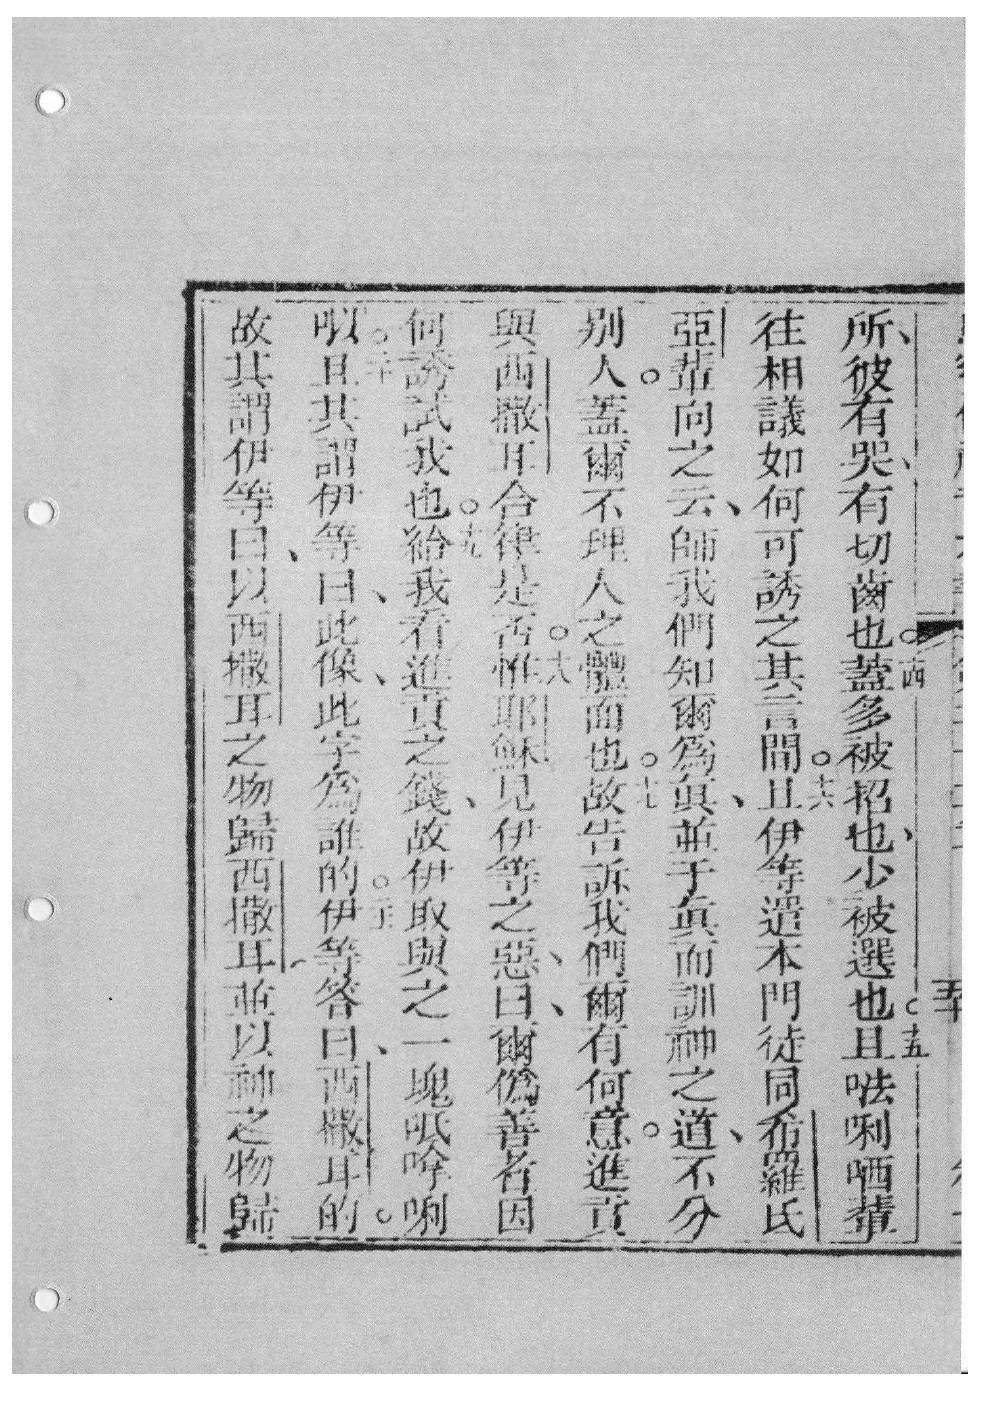 所彼有哭、有切齒也。十四蓋多被招也、少被選也。十五且㕸唎哂輩
往相議如何可誘之其言間。十六且伊等遣本門徒同希羅氏
亞輩向之云、師我們知爾爲眞、並于眞而訓神之道、不分
别人。蓋爾不理人之體面也。十七故告訴我們爾有何意。進貢
與西撒耳合律是否。十八惟耶穌見伊等之惡、曰、爾僞善者因
何誘試我也。十九給我看進貢之錢、故伊取與之一塊呧唥唎
㕥。二十且其謂伊等曰、此像、此字爲誰的。二十一伊等答曰、西撒耳的。
故其謂伊等曰、以西撒耳之物歸西撒耳、並以神之物歸